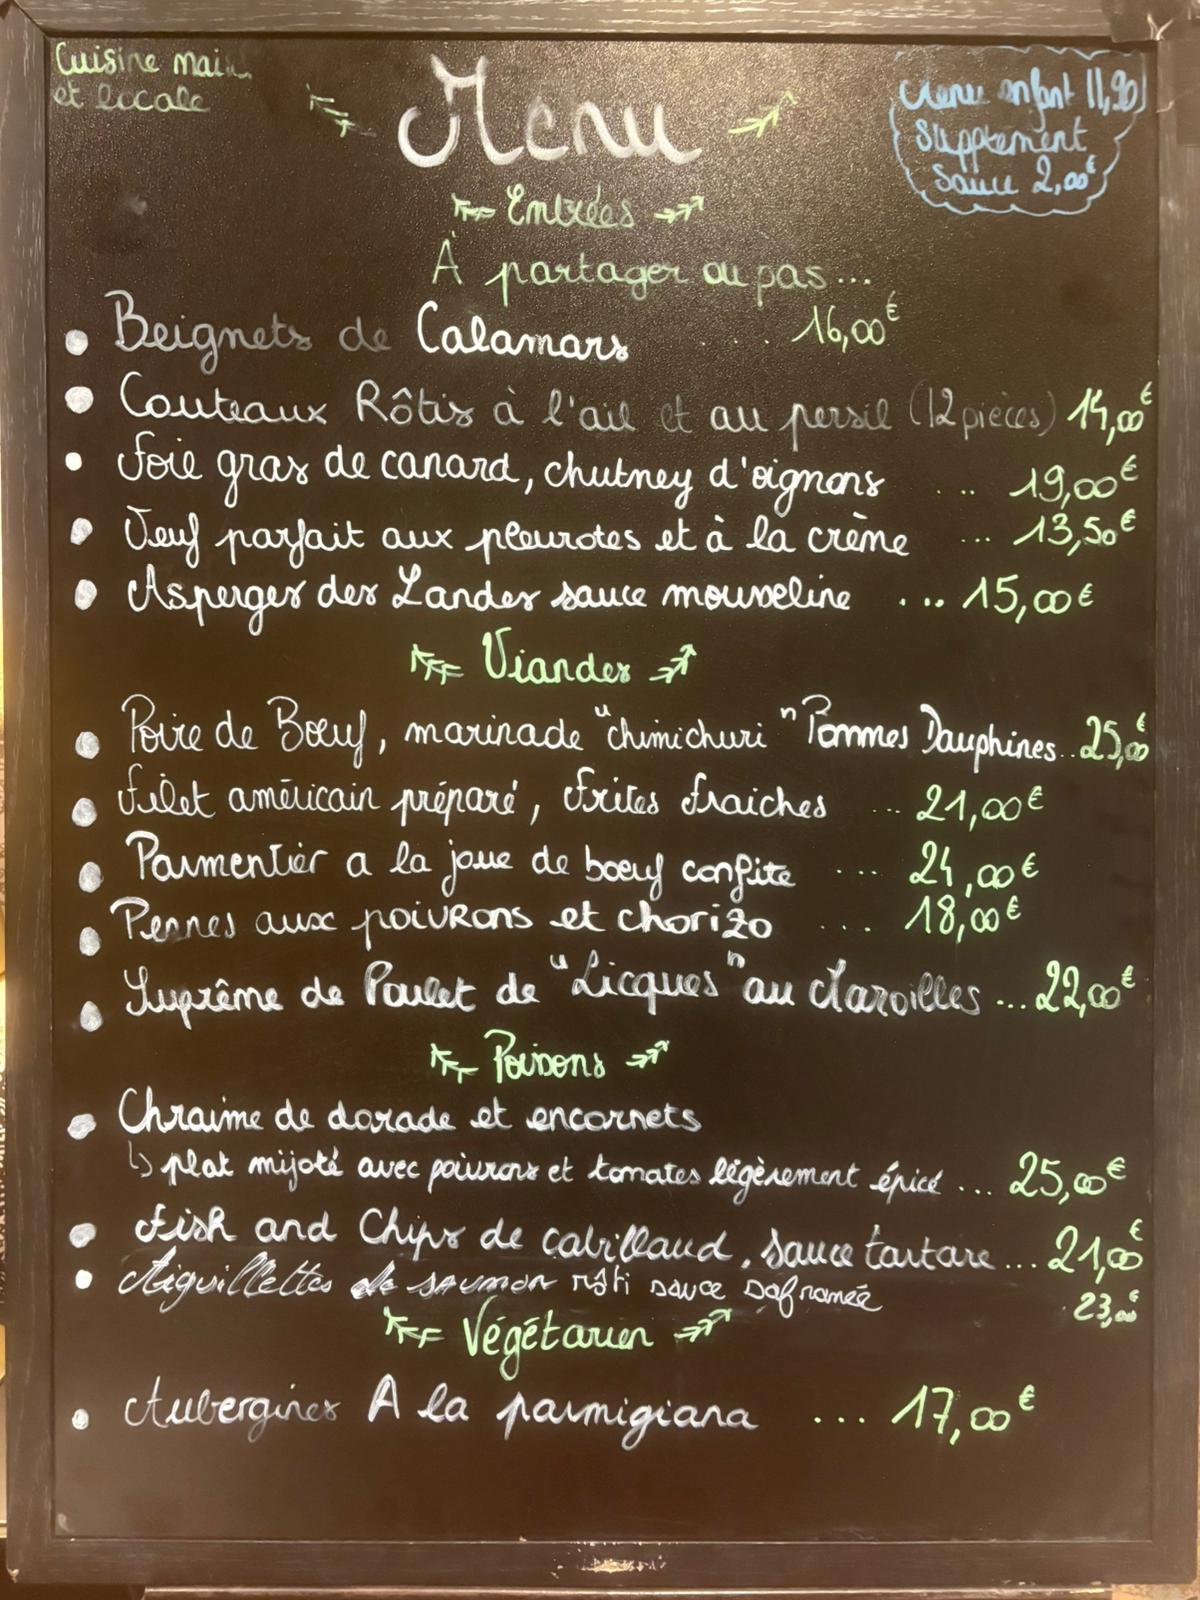 Cuisine mai
et locale
Menu
Menu enfant 11,90
Supplement
Sauce 2,00€
Entrées
À partager ou pas...
Beignets de Calamars ... 16,00€
Couteaux Rôtis à l'ail et au persil (12 pièces) 14,00€
Foie gras de canard, chutney d'oignons ... 19,00€
Oeuf parfait aux pleurotes et à la crème ... 13,50€
Asperges des Landes sauce mousseline ... 15,00€
Viandes
Poire de Bœuf, marinade "chimichuri" Pommes Dauphines.. 25,00€
Filet américain préparé, Frites Fraiches ... 21,00€
Parmentier a la joue de bœuf confite .... 24,00€
Pennes aux poivrons et chorizo ... 18,00€
Suprême de Poulet de "Licques" au Maroilles ... 22,00€
Poissons
Chraime de dorade et encornets
↳ plat mijoté avec poivrons et tomates légèrement épicé ... 25,00€
Fish and Chips de cabillaud, sauce tartare ... 21,00€
Aiguillettes de saumon rôti sauce safranée 23,00€
Végétarien
Aubergines A la parmigiana ... 17,00€